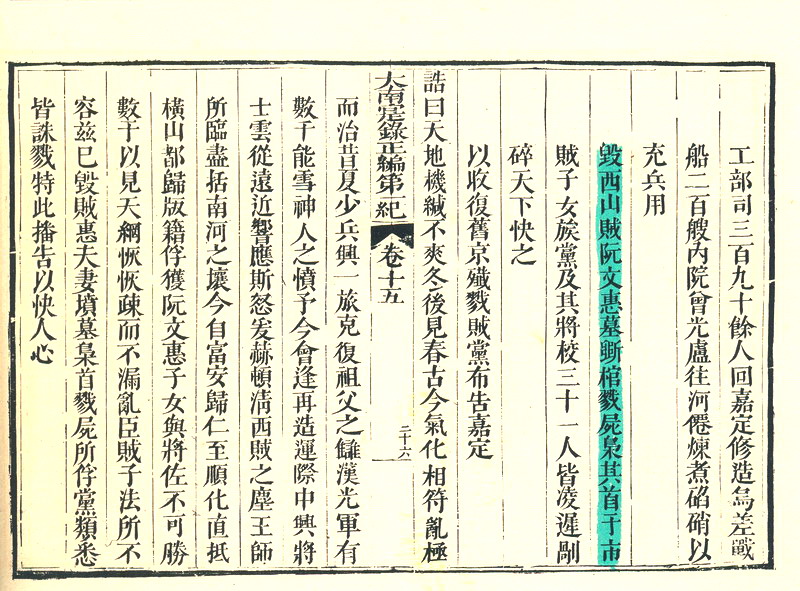 工部司三百九十餘人回嘉定修造烏差戰
船二百艘內院曾光盧往河僊煉煮硝硝以
充兵用
毀西山賊阮文惠墓斲棺戮屍梟其首于市
賊子女族黨及其將校三十一人皆凌遲剮
碎天下快之
以收復舊京殲戮賊黨布告嘉定
誥曰天地機緘不爽冬後見春古今氣化相符亂極
大南寔錄正編第一紀 卷十五 二十六
而治昔夏少兵興一旅克復祖父之讎漢光軍有
數千能雪神人之憤予今會逢再造運際中興將
士雲從遠近響應斯怒爰赫頓清西賊之塵王師
所臨盡括南河之壤今自富安歸仁至順化直抵
橫山都歸版籍俘獲阮文惠子女與將佐不可勝
數于以見天網恢恢疎而不漏亂臣賊子法所不
容茲已毀賊惠夫妻墳墓梟首戮屍所俘黨類悉
皆誅戮特此播告以快人心